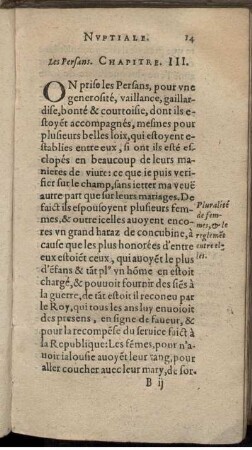 NVPTIALE. 14
Les Persans. CHAPITRE. III.
ON prise les Persans, pour vne
generosité, vaillance, gaillar-
dise, bonté & courtoisie, dont ils e-
stoyẽt accompagnés, mesmes pour
plusieurs belles loix, qui estoyent e-
stablies entre eux, si ont ils esté es-
clopés en beaucoup de leurs ma-
nieres de viure: ce que ie puis verifi-
er sur le champ, sans ietter ma veuë
autre part que sur leurs mariages. De
faict ils espousoyent plusieurs fem-
mes, & outre icelles auoyent enco-
res vn grand hataz de concubine, à
cause que les plus honorées d'entre
eux estoiẽt ceux, qui auoyẽt le plus
d'ẽfans & tãt plº vn hõme en estoit
chargé, & pouvoit fournir des siẽs à
la guerre, de tãt estoit il reconeu par
le Roy, qui tous les ans luy enuoioit
des presens, en signe de faueur, &
pour la recompẽse du seruice faict à
la Republique: Les fẽmes, pour n'a-
uoir ialousie auoyẽt leur rang, pour
aller coucher auec leur mary, de sor-
B ij
Pluralité
de fem-
mes, & le
reglemẽt
entre el-
les.